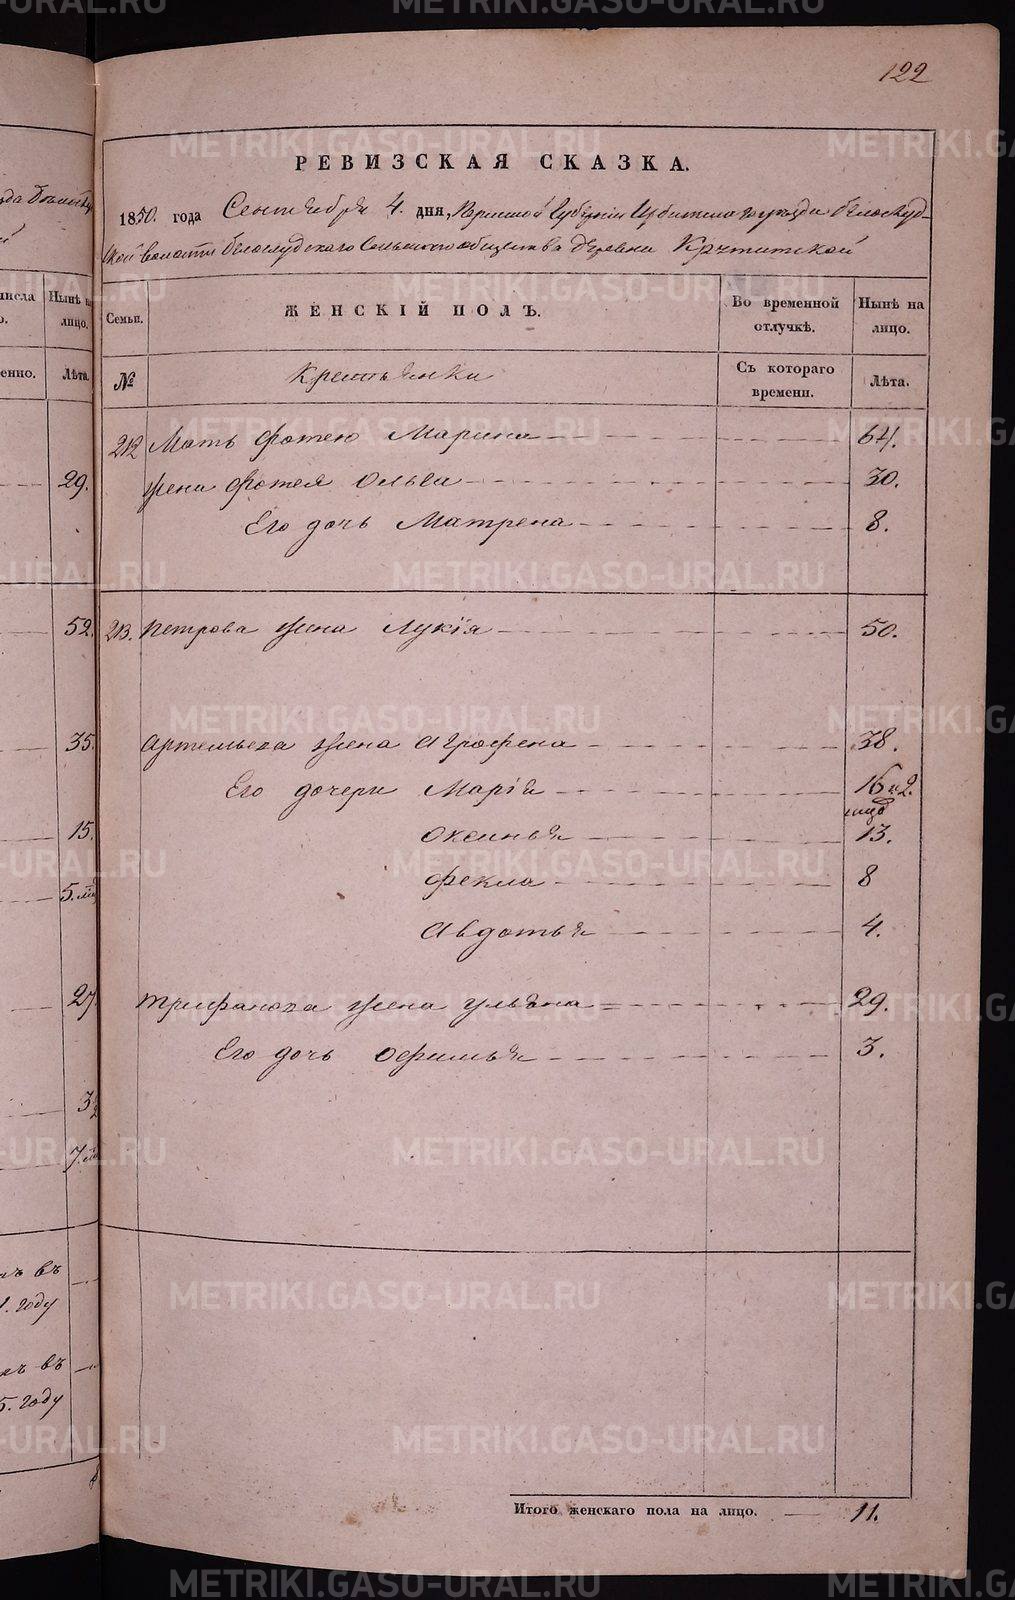 122
РЕВИЗСКАЯ СКАЗКА.
1850. года Сентября 4. дня, Пермской Губернии Ирбитского уезда Белослуд-
ской волости Белослудского Сельского общества деревни Крутитской
Семьи.
ЖЕНСКІЙ ПОЛЪ.
Во временной отлучкѣ.
Нынѣ на лицо.
№
Крестьянки
Съ котораго времени.
Лѣта.
212 Мать Фотею Марина 64.
жена Фотея Ольга 30.
Его дочь Матрена 8.
213. Петрова жена Лукія 50.
Артемьева жена Аграфена 38.
Его дочери Марія 16 и 2.
Оксинья 13.
Фекла 8
Авдотья 4.
Трифанова жена Ульяна 29.
Его дочь Офимья 3.
Итого женскаго пола на лицо. 11.
Нынѣ на лицо.
Лѣта.
29.
52.
35.
15.
27
ъ въ
1. году
ъ въ
5. году
METRIKI.GASO-URAL.RU